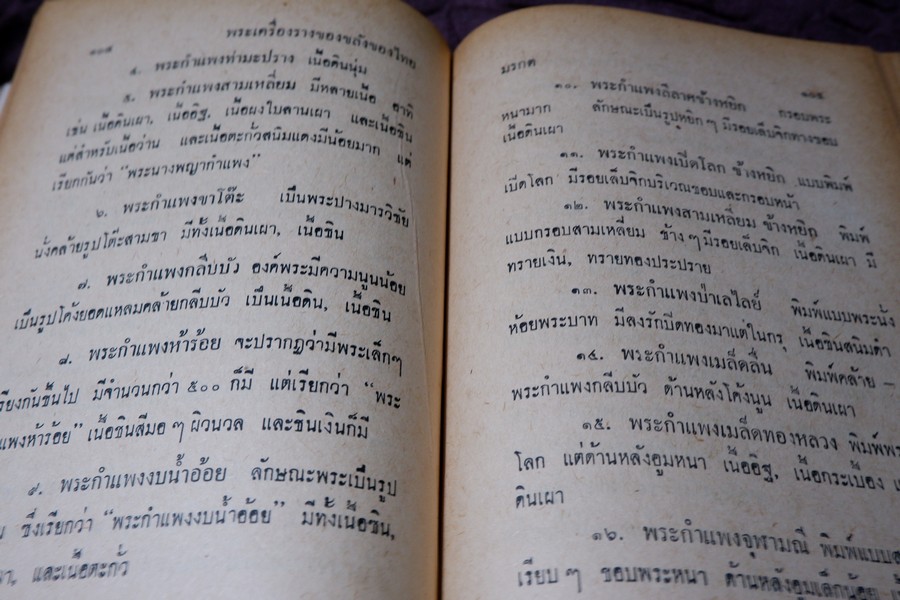 ๑๐๔ พระเครื่องรางของขลังของไทย
๔. พระกำแพงท่ามะปราง เนื้อดินนุ่ม
๕. พระกำแพงสามเหลี่ยม มีหลายเนื้อ อาทิ
เช่น เนื้อดินเผา, เนื้ออิฐ, เนื้อผงใบลานเผา และเนื้อชิน
แต่สำหรับเนื้อว่าน และเนื้อตะกั่วสนิมแดงมีน้อยมาก แต่
เรียกกันว่า “พระนางพญากำแพง”
๖. พระกำแพงขาโต๊ะ เป็นพระปางมารวิชัย
นั่งคล้ายรูปโต๊ะสามขา มีทั้งเนื้อดินเผา, เนื้อชิน
๗. พระกำแพงกลีบบัว องค์พระมีความนูนน้อย
เป็นรูปโค้งยอดแหลมคล้ายกลีบบัว เป็นเนื้อดิน, เนื้อชิน
๘. พระกำแพงห้าร้อย จะปรากฏว่ามีพระเล็กๆ
เรียงกันขึ้นไป มีจำนวนกว่า ๕๐๐ ก็มี แต่เรียกว่า “พระ
แพงห้าร้อย” เนื้อชินสีมอๆ ผิวนวล และชินเงินก็มี
๙. พระกำแพงงบน้ำอ้อย ลักษณะพระเป็นรูป
ซึ่งเรียกว่า “พระกำแพงงบน้ำอ้อย” มีทั้งเนื้อชิน,
และเนื้อตะกั่ว
มรกต ๑๐๕
๑๐. พระกำแพงลีลาศข้างหยิก กรอบพระ
หนามาก ลักษณะเป็นรูปหยิกๆ มีรอยเล็บจิกทางขอบ
เนื้อดินเผา
๑๑. พระกำแพงเปิดโลก ข้างหยิก แบบพิมพ์
เปิดโลก มีรอยเล็บจิกบริเวณขอบและกรอบหน้า
๑๒. พระกำแพงสามเหลี่ยม ข้างหยิก พิมพ์
แบบกรอบสามเหลี่ยม ข้างๆ มีรอยเล็บจิก เนื้อดินเผา มี
ทรายเงิน, ทรายทองประปราย
๑๓. พระกำแพงป่าเลไลย์ พิมพ์แบบพระนั่ง
ห้อยพระบาท มีลงรักปิดทองมาแต่ในกรุ, เนื้อชินสนิมดำ
๑๔. พระกำแพงเม็ดลืน พิมพ์คล้าย —
พระกำแพงกลีบบัว ด้านหลังโค้งนูน เนื้อดินเผา
๑๕. พระกำแพงเมล็ดทองหลวง พิมพ์
โลก แต่ด้านหลังอูมหนา เนื้ออิฐ, เนื้อกระเบื้อง
ดินเผา
๑๖. พระกำแพงจุฬามณี พิมพ์แบบ
เรียบๆ ขอบพระหนา ด้านหลังอูมเล็กน้อย